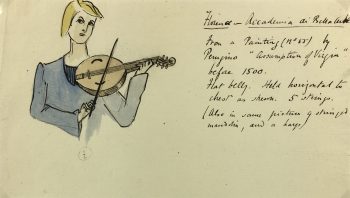 Florence – Accademia di Belle Arti
From a Painting (nº 55) by
Perugino "Assumption of Virgin"
before 1500.
Flat belly. Held horizontal to
chest as shewn. 5 strings.
(Also in same picture 4 stringed
mandolin, and a harp)